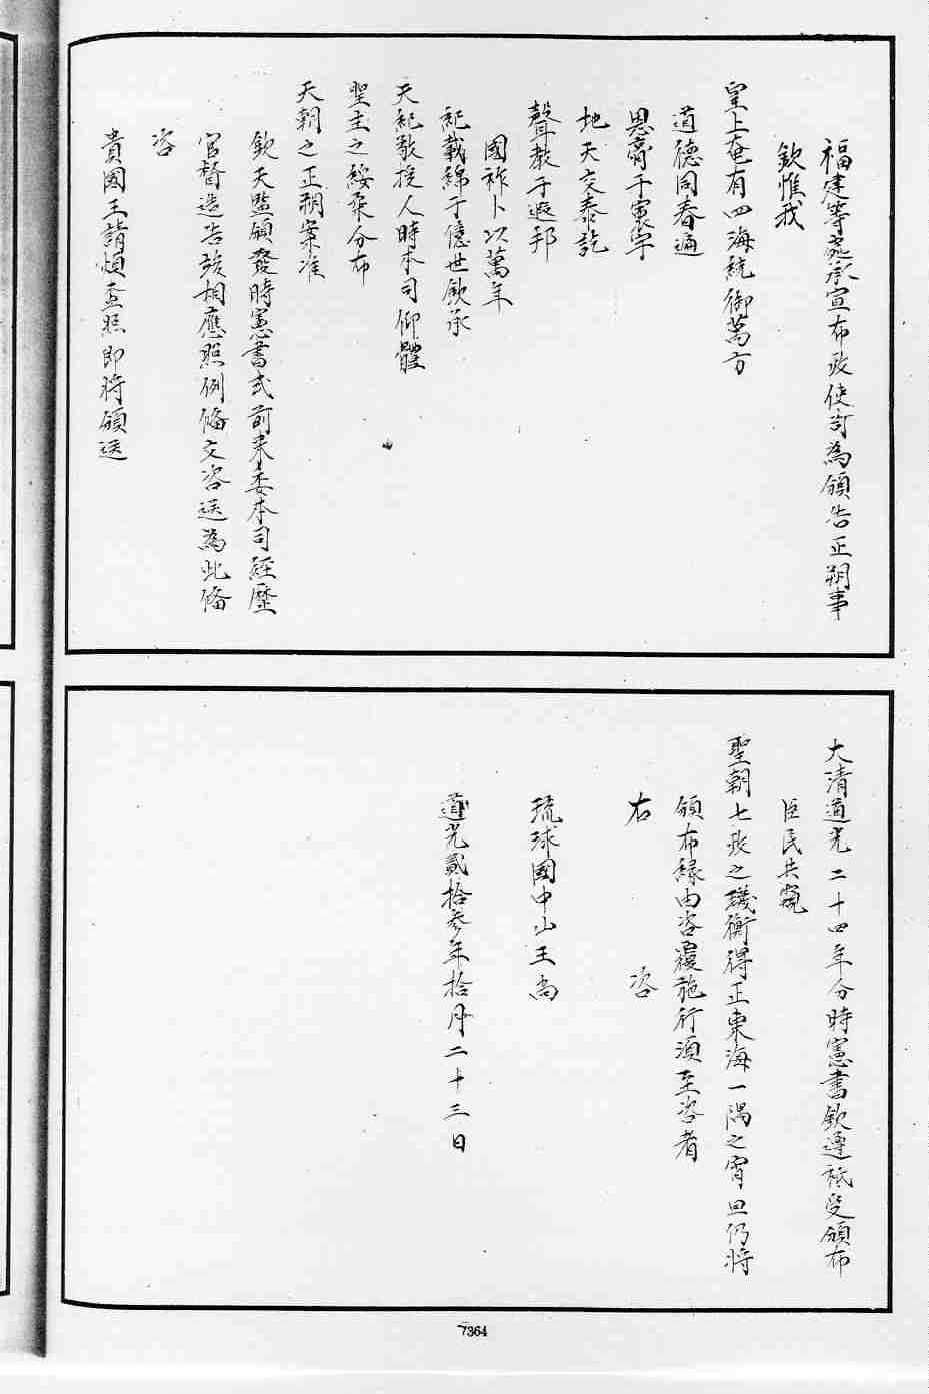 福建等處承宣布政使司為頒告正朔事
欽惟我
皇上奄有四海統御萬方
道德同春遍
恩膏于寰宇
地天交泰訖
聲教于遐邦
國祚卜以萬年
紀載綿于億世欽承
天紀敬授人時本司仰體
聖主之綏柔分布
天朝之正朔案准
欽天監頒發時憲書式前來委本司經歷
官督造告竣相應照例備文咨送為此備
咨
貴國王請煩查照即將頒送
大清道光二十四年分時憲書欽遵祗受頒布
臣民共凴
聖朝七政之璣衡得正東海一隅之宵旦仍將
頒布緣由咨覆施行須至咨者
右咨
琉球國中山王尚
道光貳拾參年拾月二十三日
7364